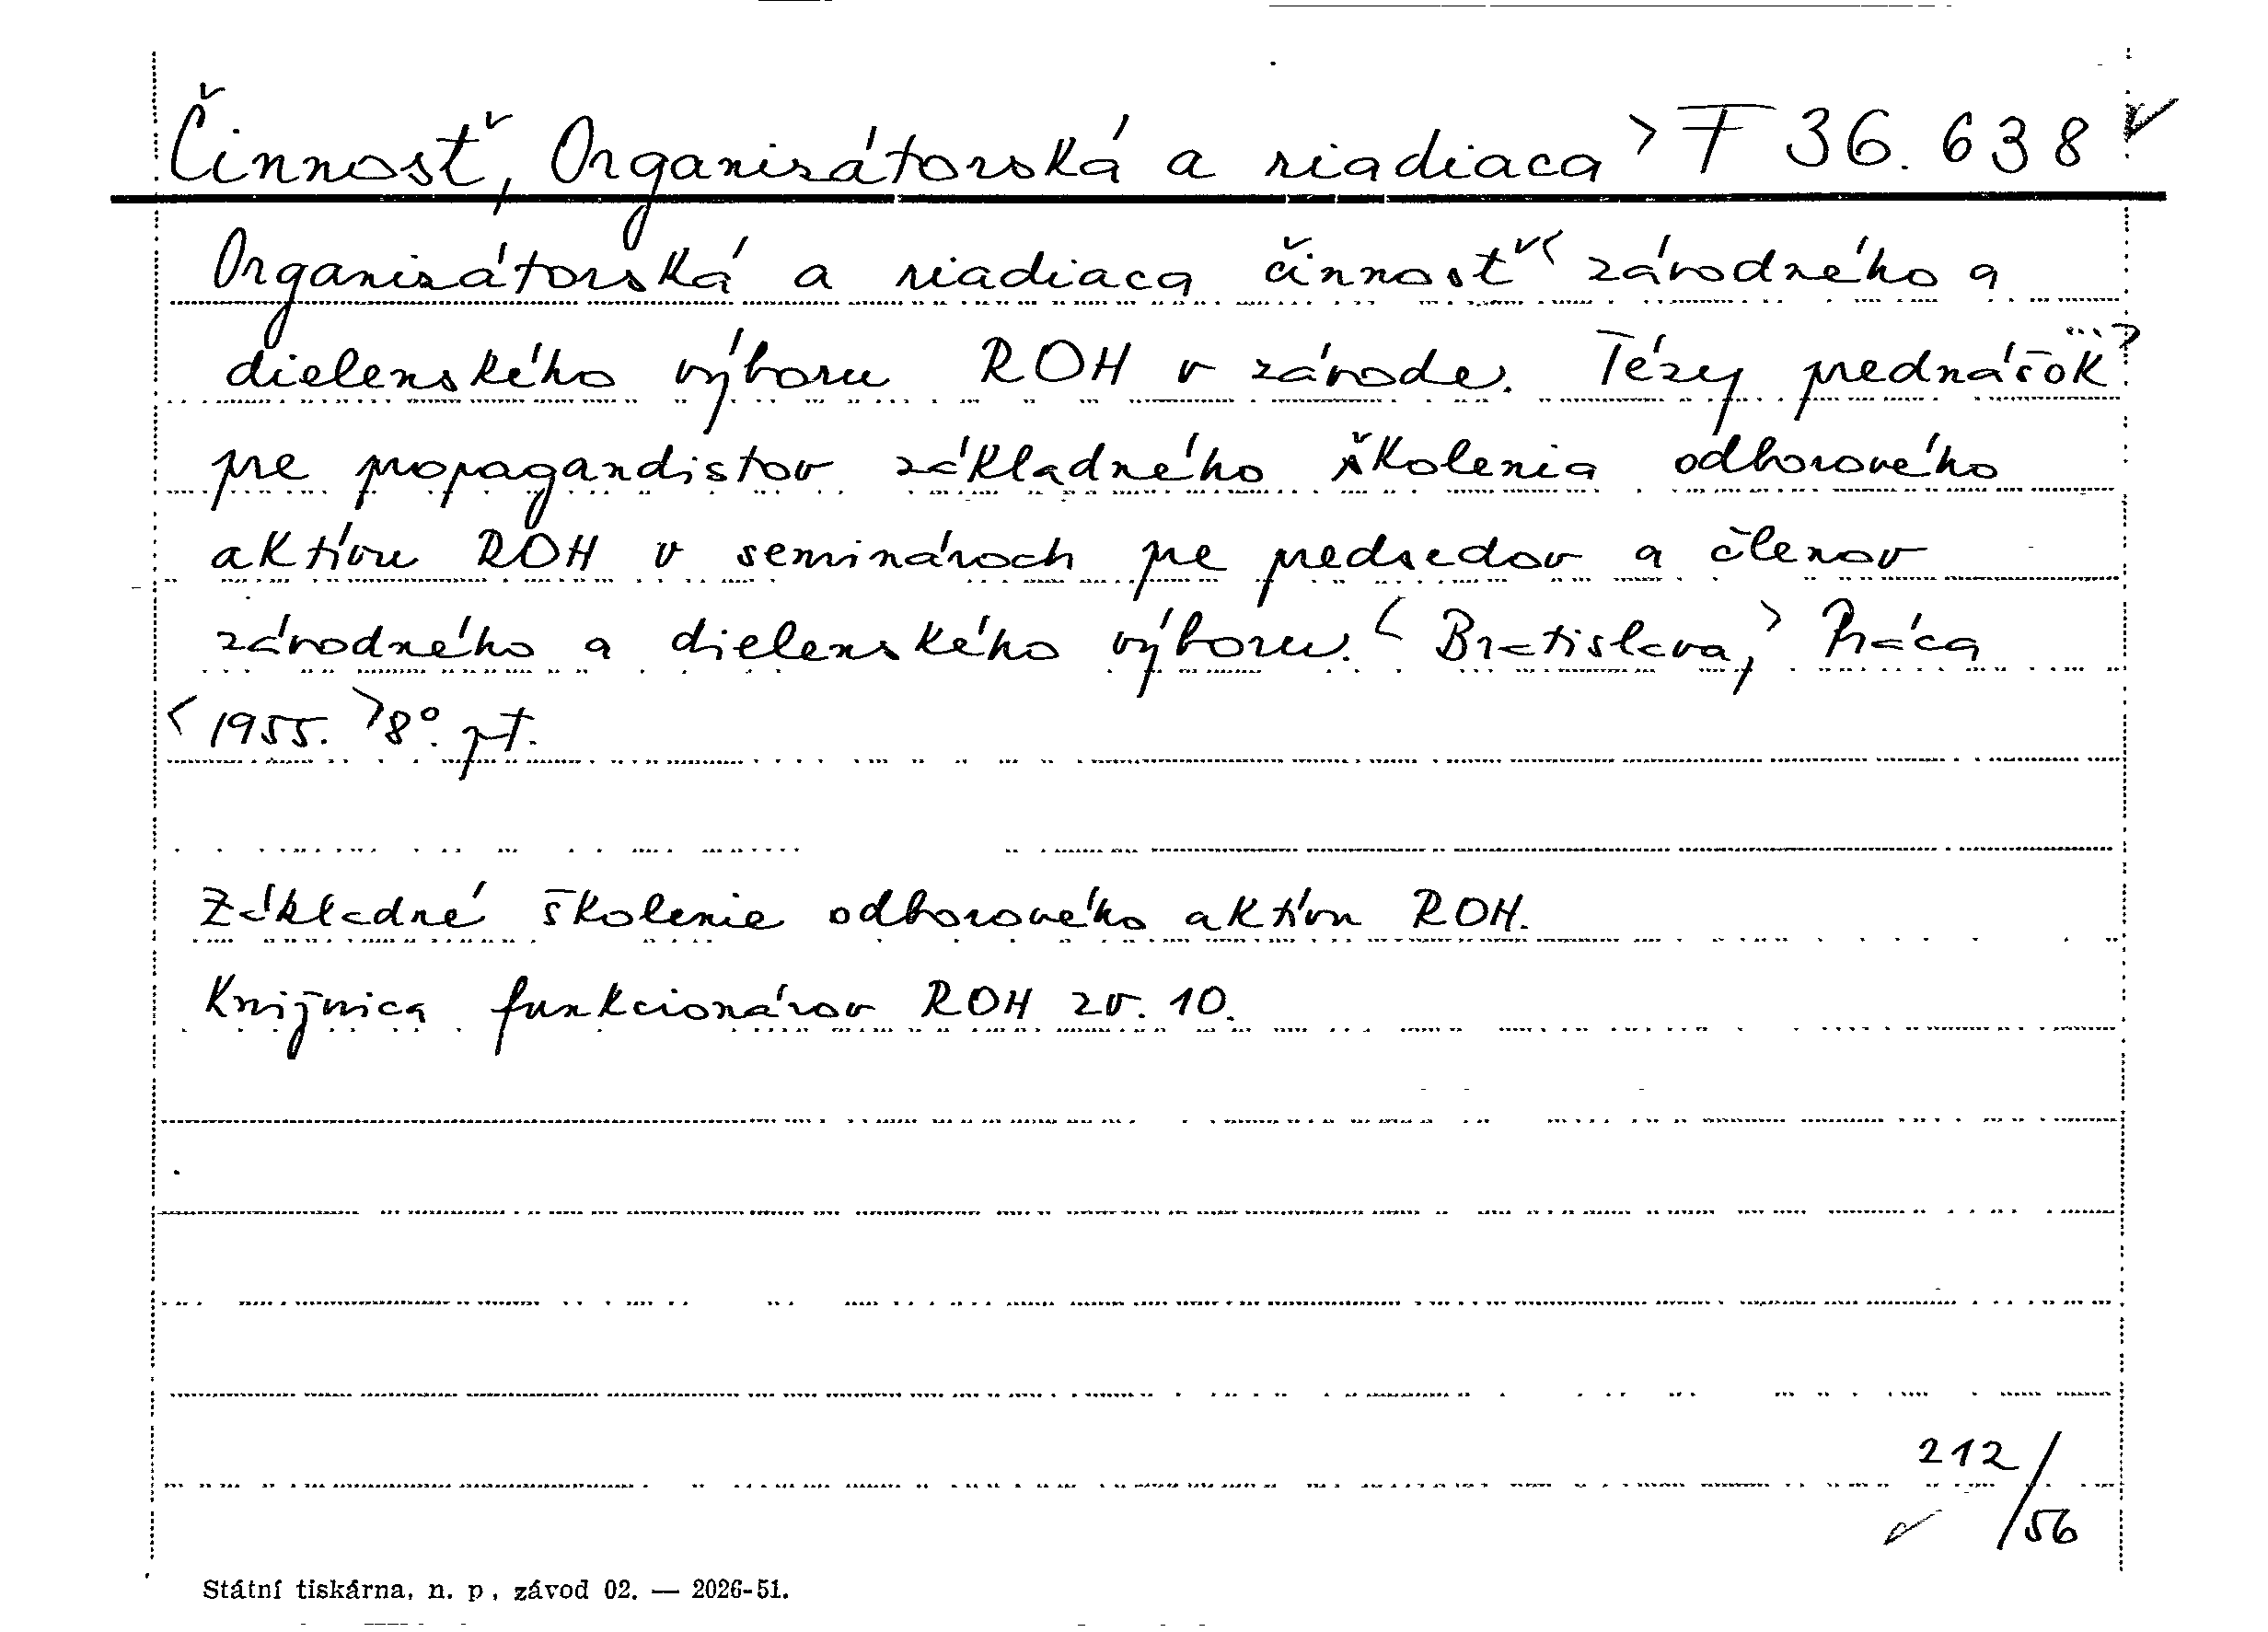 Činnosť, Organizátorská a riadiaca > F 36.638
Organizátorská a riadiaca činnosť < závodného a
dielenského výboru ROH v závode. Tézy prednášok
pre propagandistov základného školenia odborového
aktívu ROH v seminároch pre predsedov a členov
závodného a dielenského výboru. < Bratislava, > Práca
< 1955. > 8°. pt.
Základné školenie odborového aktívu ROH.
Knižnica funkcionárov ROH zv. 10.
212/
/56
Státní tiskárna, n. p., závod 02. — 2026-51.